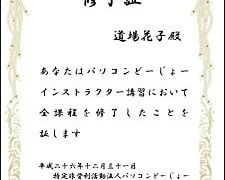 修了証
道場花子殿
あなたはパソコンどーじょー
インストラクター講習において
全課程を修了したことを
証します
平成二十六年十二月三十一日
特定非営利活動法人パソコンどーじょー